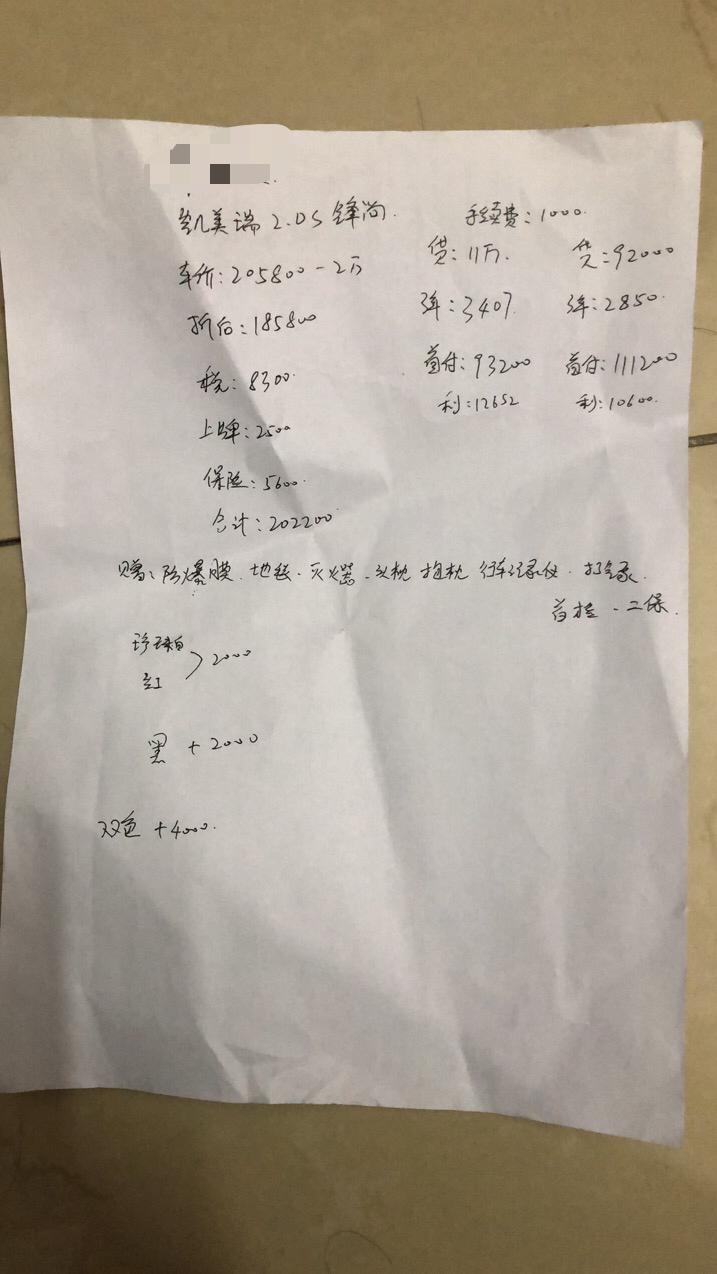 凯美瑞 2.0S 锋尚.
车价: 205800 - 2万
折后: 185800
税: 8300.
上牌: 2500
保险: 5600.
合计: 202200
手续费: 1000.
贷: 11万.
3年: 3407.
首付: 93200
利: 12652
贷: 92000
3年: 2850.
首付: 111200
利: 10600.
赠: 防爆膜. 地毯. 灭火器. 头枕 抱枕 行车记录仪.
二保.
珍珠白
红 > 2000
黑 + 2000
双色 + 4000.